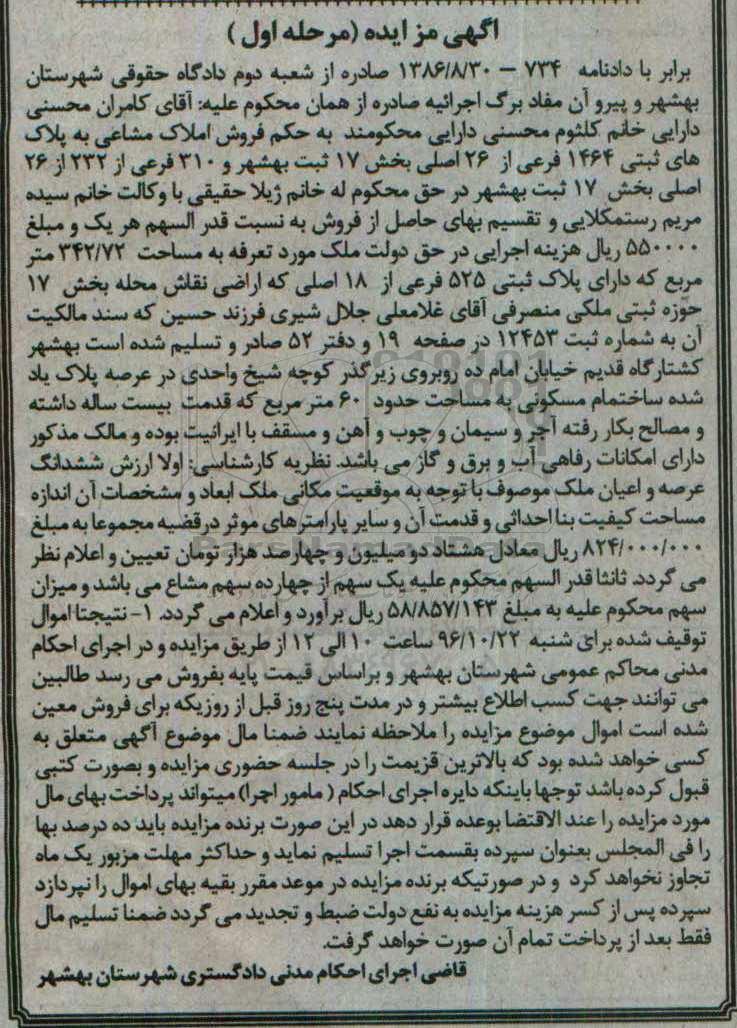 آگهی مزایده (مرحله اول)
برابر با دادنامه ۷۳۴ – ۱۳۸۶/۸/۳۰ صادره از شعبه دوم دادگاه حقوقی شهرستان
بهشهر و پیرو آن مفاد برگ اجرائیه صادره از همان محکوم علیه: آقای کامران محسنی
دارایی خانم کلثوم محسنی دارایی محکومند به حکم فروش املاک مشاعی به پلاک
های ثبتی ۱۴۶۴ فرعی از ۲۶ اصلی بخش ۱۷ ثبت بهشهر و ۳۱۰ فرعی از ۲۳۲ از ۲۶
اصلی بخش ۱۷ ثبت بهشهر در حق محکوم له خانم ژیلا حقیقی با وکالت خانم سیده
مریم رستمکلایی و تقسیم بهای حاصل از فروش به نسبت قدر السهم هر یک و مبلغ
۵۵۰۰۰۰ ریال هزینه اجرایی در حق دولت ملک مورد تعرفه به مساحت ۳۴۲/۷۲ متر
مربع که دارای پلاک ثبتی ۵۲۵ فرعی از ۱۸ اصلی که اراضی نقاش محله بخش ۱۷
حوزه ثبتی ملکی متصرفی آقای غلامعلی جلال شیری فرزند حسین که سند مالکیت
آن به شماره ثبت ۱۲۴۵۳ در صفحه ۱۹ و دفتر ۵۲ صادر و تسلیم شده است بهشهر
کشتارگاه قدیم خیابان امام ده روبروی زیرگذر کوچه شیخ واحدی در عرصه پلاک یاد
شده ساختمام مسکونی به مساحت حدود ۶۰ متر مربع که قدمت بیست ساله داشته
و مصالح بکار رفته آجر و سیمان و چوب و آهن و مسقف با ایرانیت بوده و مالک مذکور
دارای امکانات رفاهی آب و برق و گاز می باشد. نظریه کارشناسی: اولا ارزش ششدانگ
عرصه و اعیان ملک موصوف با توجه به موقعیت مکانی ملک ابعاد و مشخصات آن اندازه
مساحت کیفیت بنا احداثی و قدمت آن و سایر پارامترهای موثر در قضیه مجموعا به مبلغ
۸۲۴/۰۰۰/۰۰۰ ریال معادل هشتاد دو میلیون و چهارصد هزار تومان تعیین و اعلام نظر
می گردد. ثانثا قدر السهم محکوم علیه یک سهم از چهارده سهم مشاع می باشد و میزان
سهم محکوم علیه به مبلغ ۵۸/۸۵۷/۱۴۳ ریال برآورد و اعلام می گردد. ۱- نتیجتا اموال
توقیف شده برای شنبه ۹۶/۱۰/۲۲ ساعت ۱۰ الی ۱۲ از طریق مزایده و در اجرای احکام
مدنی محاکم عمومی شهرستان بهشهر و براساس قیمت پایه بفروش می رسد طالبین
می توانند جهت کسب اطلاع بیشتر و در مدت پنج روز قبل از روزیکه برای فروش معین
شده است اموال موضوع مزایده را ملاحظه نمایند ضمنا مال موضوع آگهی متعلق به
کسی خواهد شده بود که بالاترین قزیمت را در جلسه حضوری مزایده و بصورت کتبی
قبول کرده باشد توجها باینکه دایره اجرای احکام ( مامور اجرا) میتواند پرداخت بهای مال
مورد مزایده را عند الاقتضا بوعده قرار دهد در این صورت برنده مزایده باید ده درصد بها
را فی المجلس بعنوان سپرده بقسمت اجرا تسلیم نماید و حداکثر مهلت مزبور یک ماه
تجاوز نخواهد کرد و در صورتیکه برنده مزایده در موعد مقرر بقیه بهای اموال را نپردازد
سپرده پس از کسر هزینه مزایده به نفع دولت ضبط و تجدید می گردد ضمنا تسلیم مال
فقط بعد از پرداخت تمام آن صورت خواهد گرفت.
قاضی اجرای احکام مدنی دادگستری شهرستان بهشهر